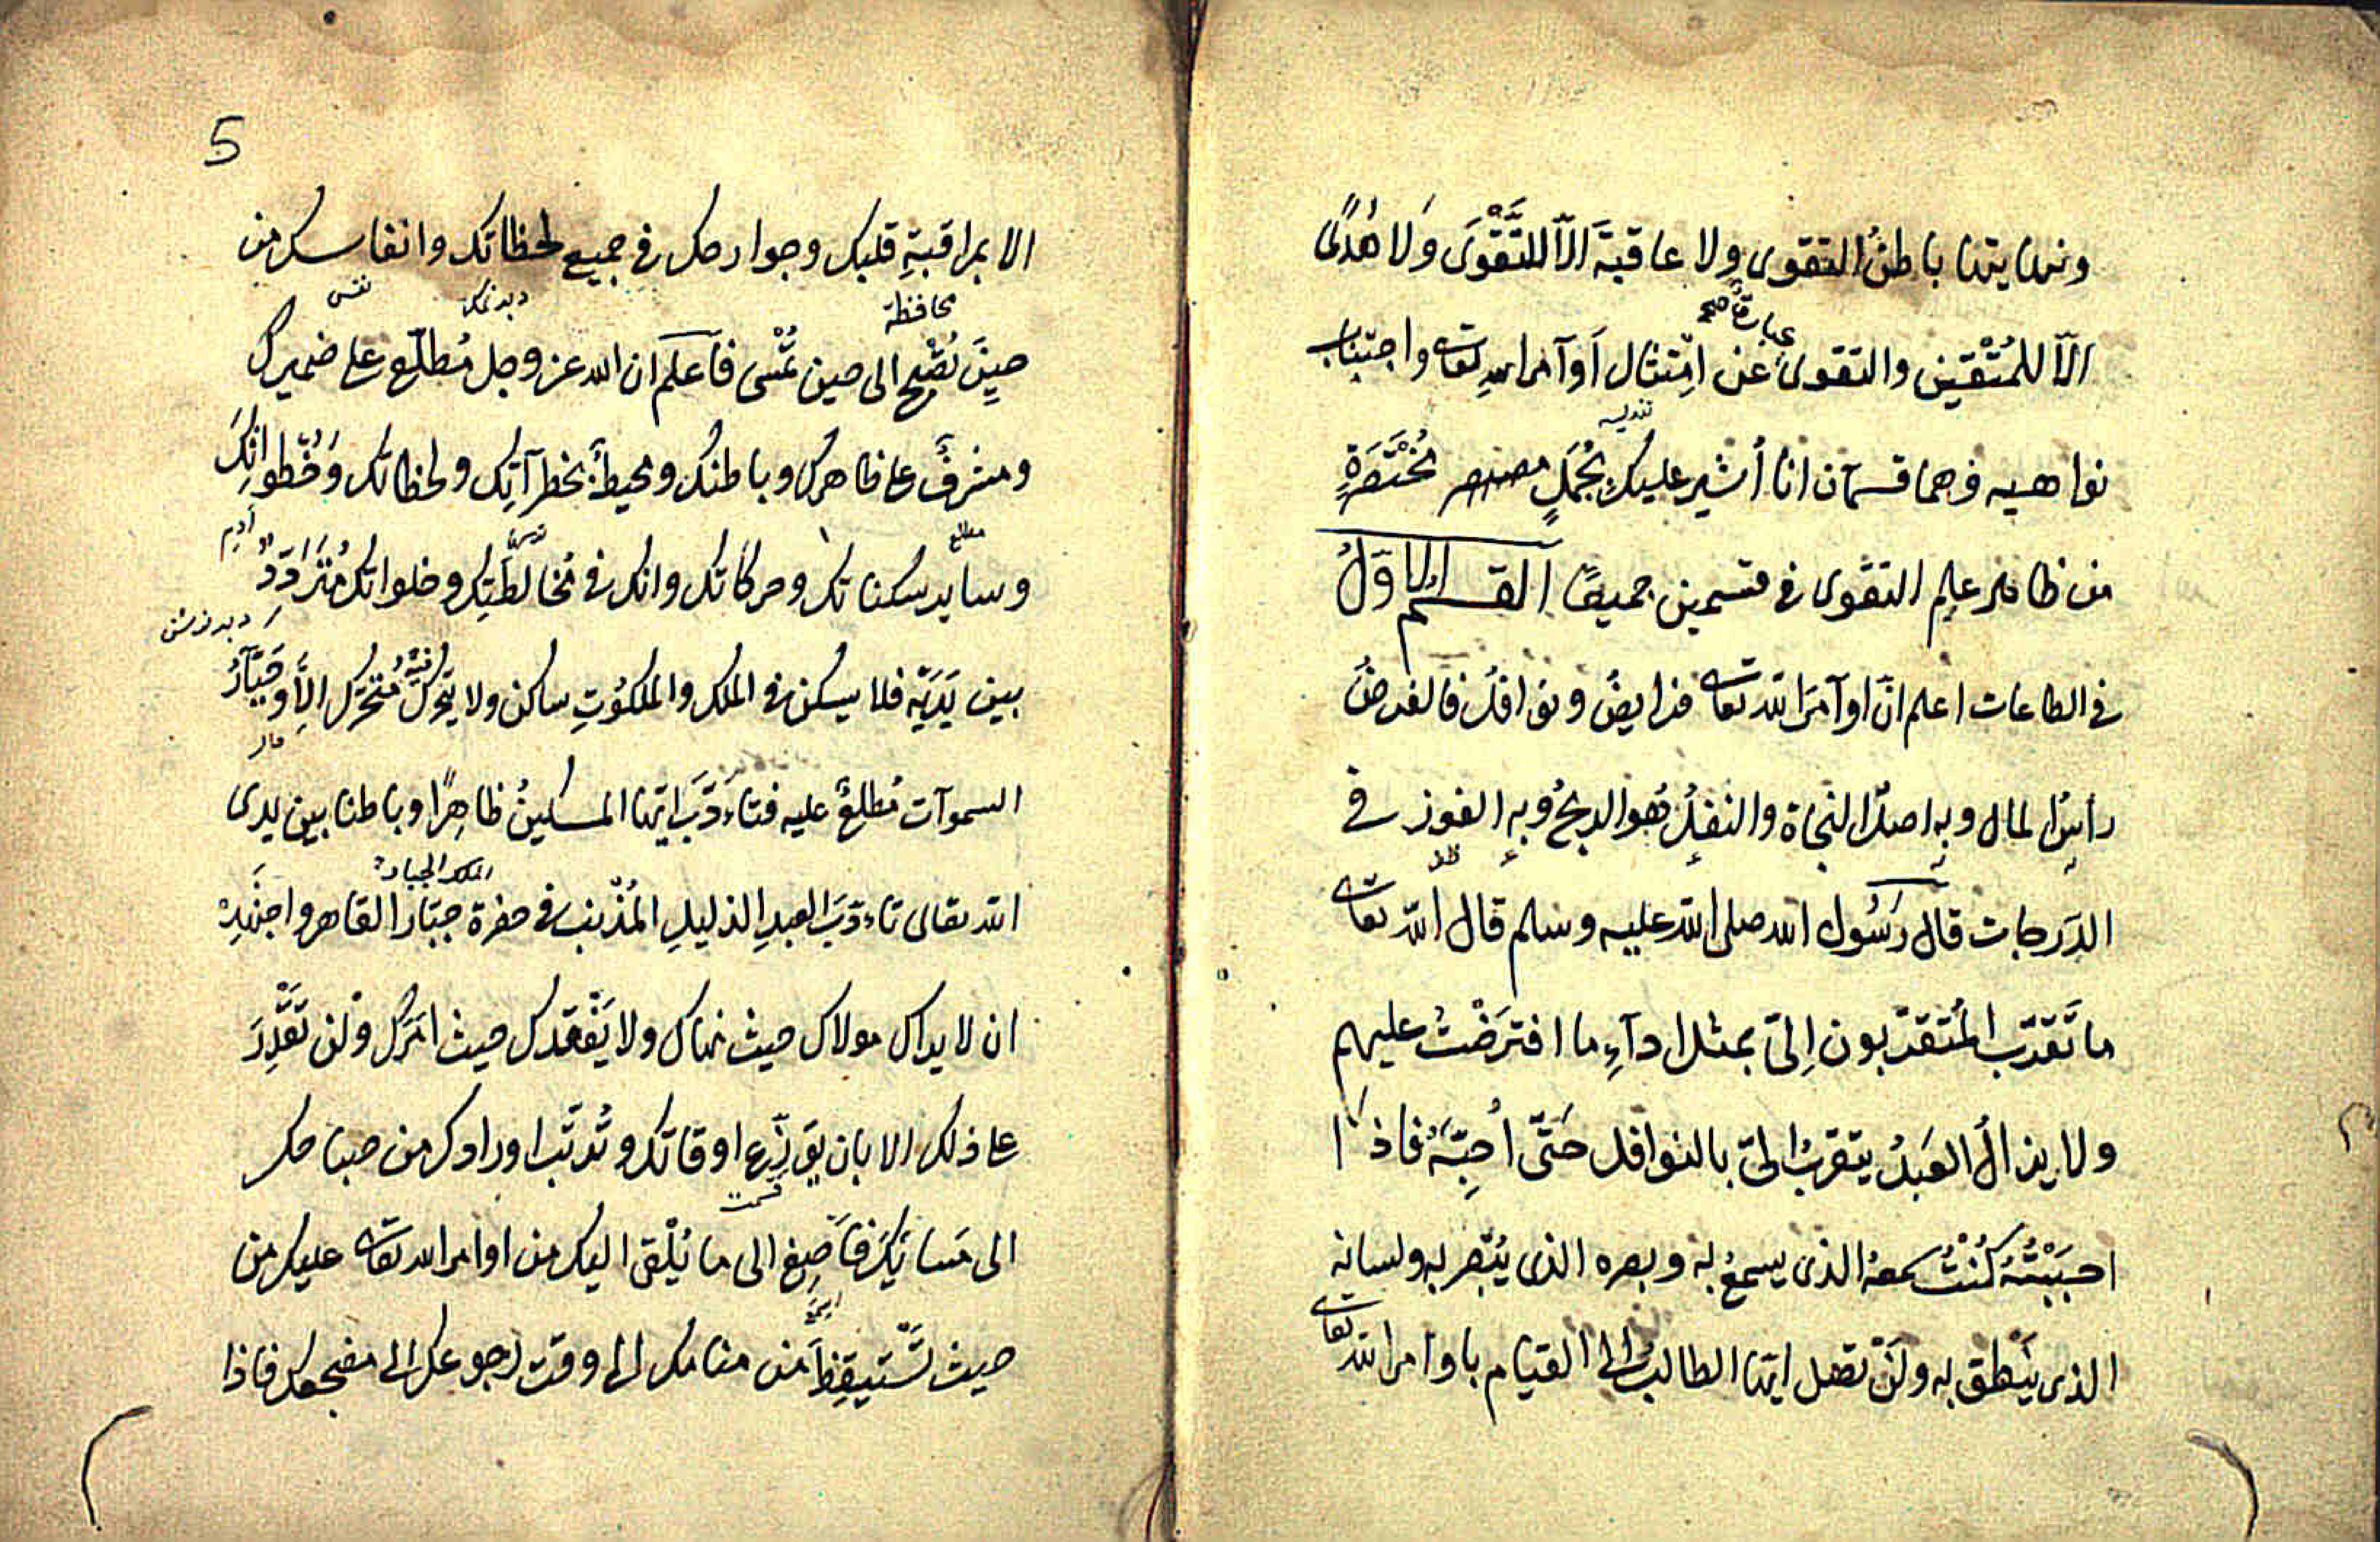 ونهايتها باطنُ التقوى ولا عاقبةَ الّا للتَّقْوَى وَلا هُدًى
عبارةٌ صح
الّا للمُتّقين والتقوى عن امْتثال أوآمر الله تعالى واجتناب
نواهيه فهما قسمان انا أشير عليك بِجُمَلٍ مُخْتَصَرَةٍ
من ظاهر علم التقوى في قسمين جميعًا القسم الاوّلُ
في الطاعات اعلم انّ اوآمرَ الله تعالى فرايضُ ونوافلُ فالفرضُ
رأسُ المال وبه اصلُ النجاة والنفلُ هُو الربحُ وبه الفوز في
الدَرجات قال رَسُول الله صلى الله عليه وسلم قال الله تعالى
ما تَقرّب المُتقرّبون اِلىّ بمثل ادآءِ ما افترَضْتُ عليهم
ولا يزالُ العَبدُ يتقربُ الىّ بالنوافل حَتّى أُحِبّهُ فاذَا
احبَبْتُهُ كُنْتُ سمعهُ الذى يسمعُ به وبصره الذى يُبْصر به ولسانه
الذى يَنْطق به ولَنْ تصل ايّها الطالبُ الى القيام باوامر الله تعالى
5
الا بمراقبةِ قلبك وجوارحك في جميع لحظاتك وانفاسك من
محافظة
نفس
حينَ تُصْبح الى حين تُمْسى فاعلم ان الله عز وجل مُطلّع على ضميرك
ومشرفٌ على ظاهرك وباطنك ومحيطٌ بخطرآتِك ولحظاتك وَخُطواتِكَ
وساير سكناتك وحركاتك وانك في مُخالطَتِك وخلواتك مُتَرَدّدٌ
مطلع
بين يَدَيْهِ فلا يسكن في الملك والملكوُتِ ساكن ولا يتحركُ مُتحَرّك الاّ وَجَبّارُ
السموآت مُطلعٌ عليه فتاَءدّبَ ايّها المسكينُ ظاهِرًا وباطنا بين يدى
الملك الجبار
الله تعالى تاءدّبَ العبدِ الذليلِ المُذْنِب في حضرة جبّار القاهر واجتَهِدْ
ان لا يراك مولاك حيث نهاك ولا يَفْقدك حيث امَرَك ولن تَقْدِرَ
على ذلك الا بان توَزِّع اوقاتك وتُرتّب اورادك من صباحك
قسمت
الى مَسائِكَ فاَصِغ الى ما يُلْقى اليك من اوامر الله تعالى عليك من
حيث تَسْتيقِظَ من منامك الى وقت رجوعك الى مضجعك فاذا